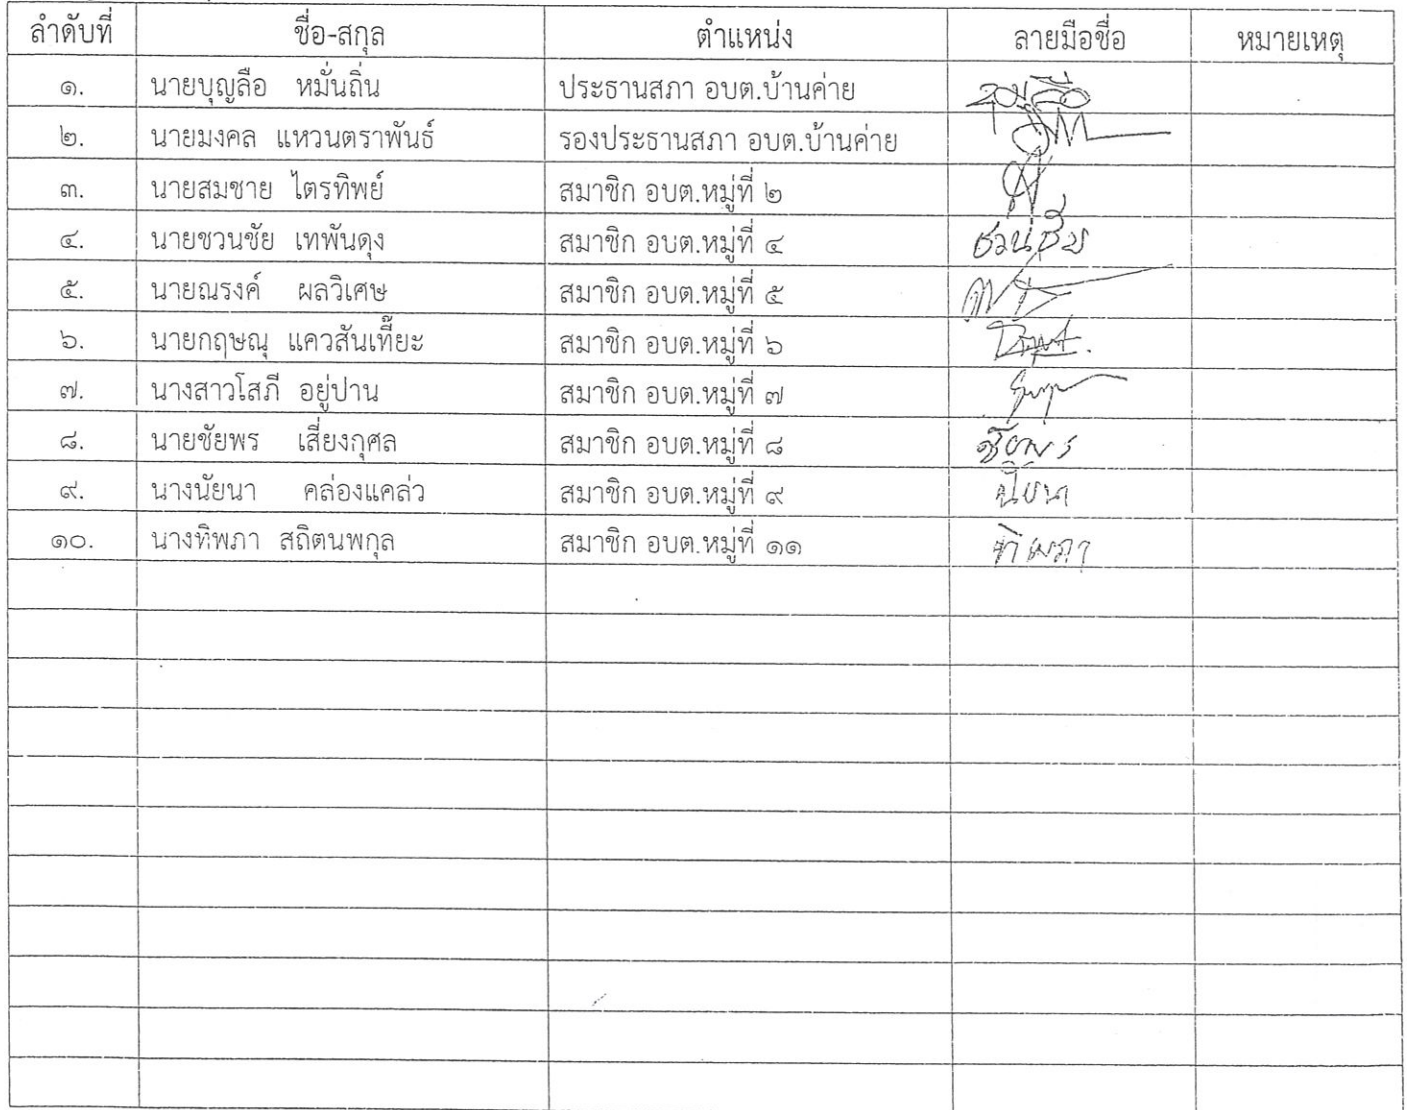 ลำดับที่ ชื่อ-สกุล ตำแหน่ง ลายมือชื่อ หมายเหตุ
๑. นายบุญลือ หมั่นถิ่น ประธานสภา อบต.บ้านค่าย
๒. นายมงคล แหวนตราพันธ์ รองประธานสภา อบต.บ้านค่าย
๓. นายสมชาย ไตรทิพย์ สมาชิก อบต.หมู่ที่ ๒
๔. นายชวนชัย เทพันดุง สมาชิก อบต.หมู่ที่ ๔ ชวนชัย
๕. นายณรงค์ ผลวิเศษ สมาชิก อบต.หมู่ที่ ๕
๖. นายกฤษณุ แควสันเที๊ยะ สมาชิก อบต.หมู่ที่ ๖
๗. นางสาวโสภี อยู่ปาน สมาชิก อบต.หมู่ที่ ๗
๘. นายชัยพร เสี่ยงกุศล สมาชิก อบต.หมู่ที่ ๘ ชัยพร
๙. นางนัยนา คล่องแคล่ว สมาชิก อบต.หมู่ที่ ๙ นัยนา
๑๐. นางทิพภา สถิตนพกุล สมาชิก อบต.หมู่ที่ ๑๑ ทิพภา